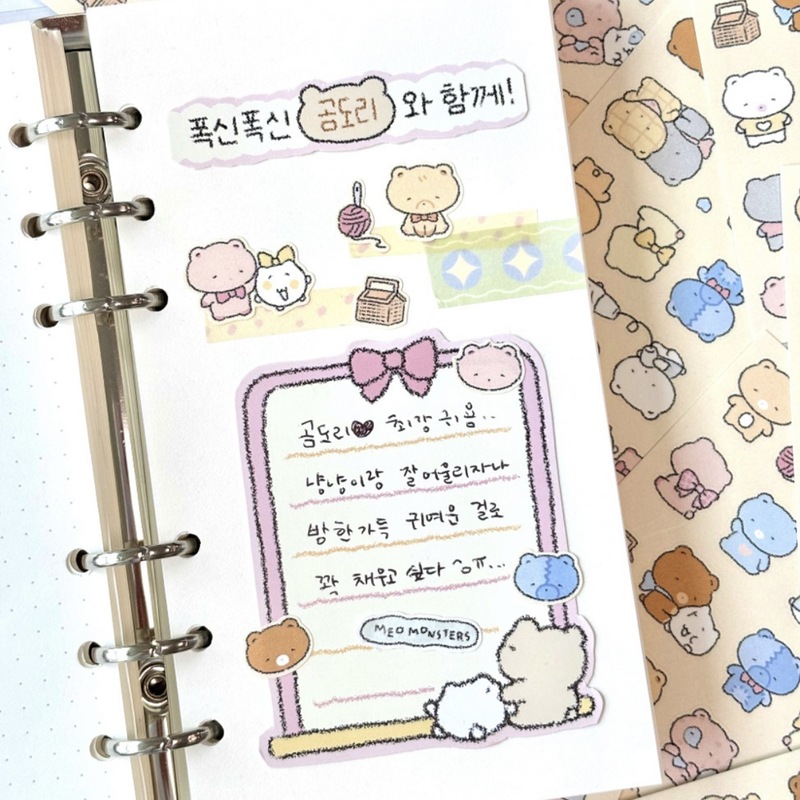 폭신폭신 곰도리 와 함께!
곰도리♥ 최강 귀욤..
냥냥이랑 잘 어울리자나
방 한가득 귀여운 걸로
꽉 채우고 싶다 ㅎㅠ...
MEO MONSTERS